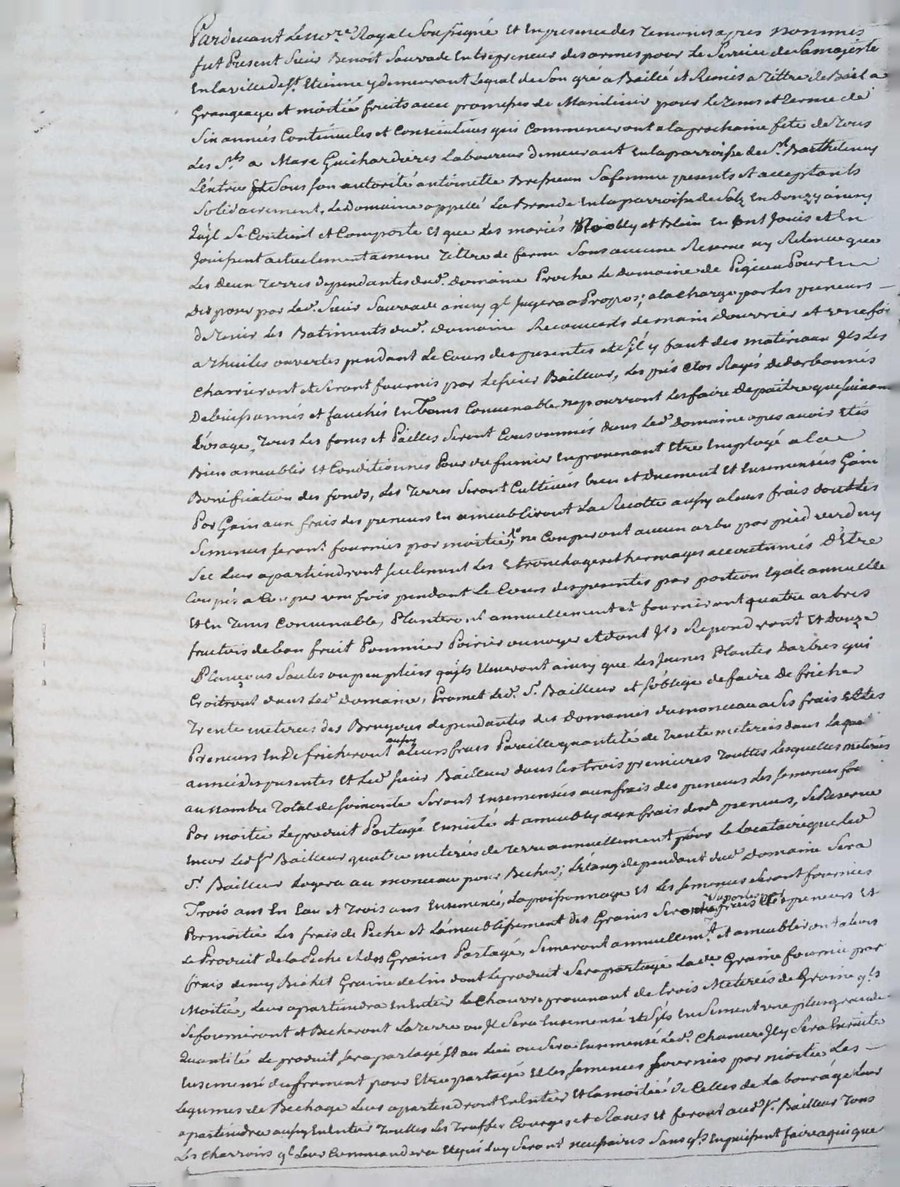 Pardevant Le no.re Royal Soussigné Et En presence des Temoins apres Nommés
fut Present Sieur Benoit Sauvade Entrepreneur des armes pour le Service de Sa majesté
En la ville de St Etienne y demeurant Lequel de Son gré a Baillé et Remis a Tittre de Bail a
Grangeage et moitié fruits avec promesses de Maintenir pour le Tems et Terme de
Six années Continuelles et Consecutives qui Commenceront a la prochaine fete de Tous
Les Sts a Marc Guichardieres Laboureur demeurant En la parroisse de St Barthelemy
Lestra Et Sous son autorité antoinette Safemme presents et acceptants
Solidairement, Le Domaine appellé La Brande En la parroisse de En Donzy ainsy
quil Se Contient et Comporte Et que Les mariés et Blein En ont Jouis et En
Jouissent actuellement a meme Tittre de ferme Sans aucune Reserve ny Retenue que
Les deux Terres dependantes dud. domaine Proche Le domaine de Pour En
Disposer par Led. Sieur Sauvade ainsy ql Jugera a Propos; a la charge par Les preneurs
de Tenir Les Batiments dud. domaine Recouverts de main d'ouvrier et une fois
a Thuiles ouvertes pendant le Cours des presentes et Sil y faut des materiaux Ils Les
Charrieront et Seront fournis par Le Sieur Bailleur, Les prés Clos Rayés
Debuissonnés et fauchés En Tems Convenable ne pourront Les faire Depaitre que Suivant
L'usage, Tous Les foins et Pailles Seront Consommés dans Led. domaine
Bien ameublis et Conditionnés Pour du fumier En provenant Etre Employé a la
Bonification des fonds, Les Terres Seront Cultivées bien et Duement Et Ensemencées Gain
Par Gain aux frais des preneurs En ameubliront La Recolte aussy a leurs frais dont Les
Semences Seront fournies par moitié, ne Couperont aucun arbre par pied verd ny
Sec Leur apartiendront Seulement Les Etronchages et hermages accoutumés D'Etre
Coupés a Couper une fois pendant Le Cours des presentes par portion Egale annuelle
Et En Tems Convenable, Planteront annuellement et fourniront quatre arbres
fruitiers de bon fruit Pommier Poirier ou noyer Et dont Ils Repondront Et Douze
Plançons Saules ou peupliers quils Eleveront ainsy que Les Jeunes Plantes Darbres qui
Croitront dans Led. Domaine, Promet Led. Sr. Bailleur et S'oblige de faire defricher
Trente meterées des Bruyeres dependantes des Domaines du monceau a Ses frais Et Les
Preneurs En Defricheront aussy a leurs frais Pareille quantité de Trente meterées dans La
année des presentes Et Led. Sieur Bailleur dans les trois premieres Touttes Lesquelles meterées
au nombre Total de Soixante Seront Ensemencées aux frais des preneurs Les Semences
Par moitié Le produit Partagé Ensuite et ameubly aux frais desd. preneurs, Se Reserve
Encor Led. Sr Bailleur quatre meterées de Terre annuellement pour le Locataire que Led.
Sr. Bailleur Logera au monceau pour Becher; L'étang dependant dud. Domaine Sera
Trois ans En Eau et Trois ans Ensemencé, La poissonnage et Les Semences Seront fournies
Par moitié Les frais de Peche et L'ameublissement des Grains Seront Suportés par Les preneurs Et
Le Produit de la Peche et des Grains Partagé, Semeront annuellemt. Et ameubliront a leurs
frais demy Bichet Graine de Lin dont Le produit Sera partagé Lad. Graine fournie par
Moitié, Leur apartiendra En Entier Le Chanvre provenant de trois Meterées de Graine qls
Se fourniront et Becheront La Terre ou Il Sera Ensemencé Et Sils En Sement une plus grande
Quantité Le produit Sera partagé Et au Lieu ou Sera Ensemencé Led. Chanvre Il y Sera Ensuite
Ensemencé du froment pour Etre partagé Et les Semences fournies par moitié Les
Legumes de Bechage Leur apartiendront En Entier Et La moitié de Celles de Labourage Leur
apartiendra aussy En Entier Touttes Les Truffes Courges et Raves Et feront aud. Sr. Bailleur Tous
Les Charrois ql Leur Commandera Et qui Luy Seront necessaires Sans qls En puissent faire a qui que